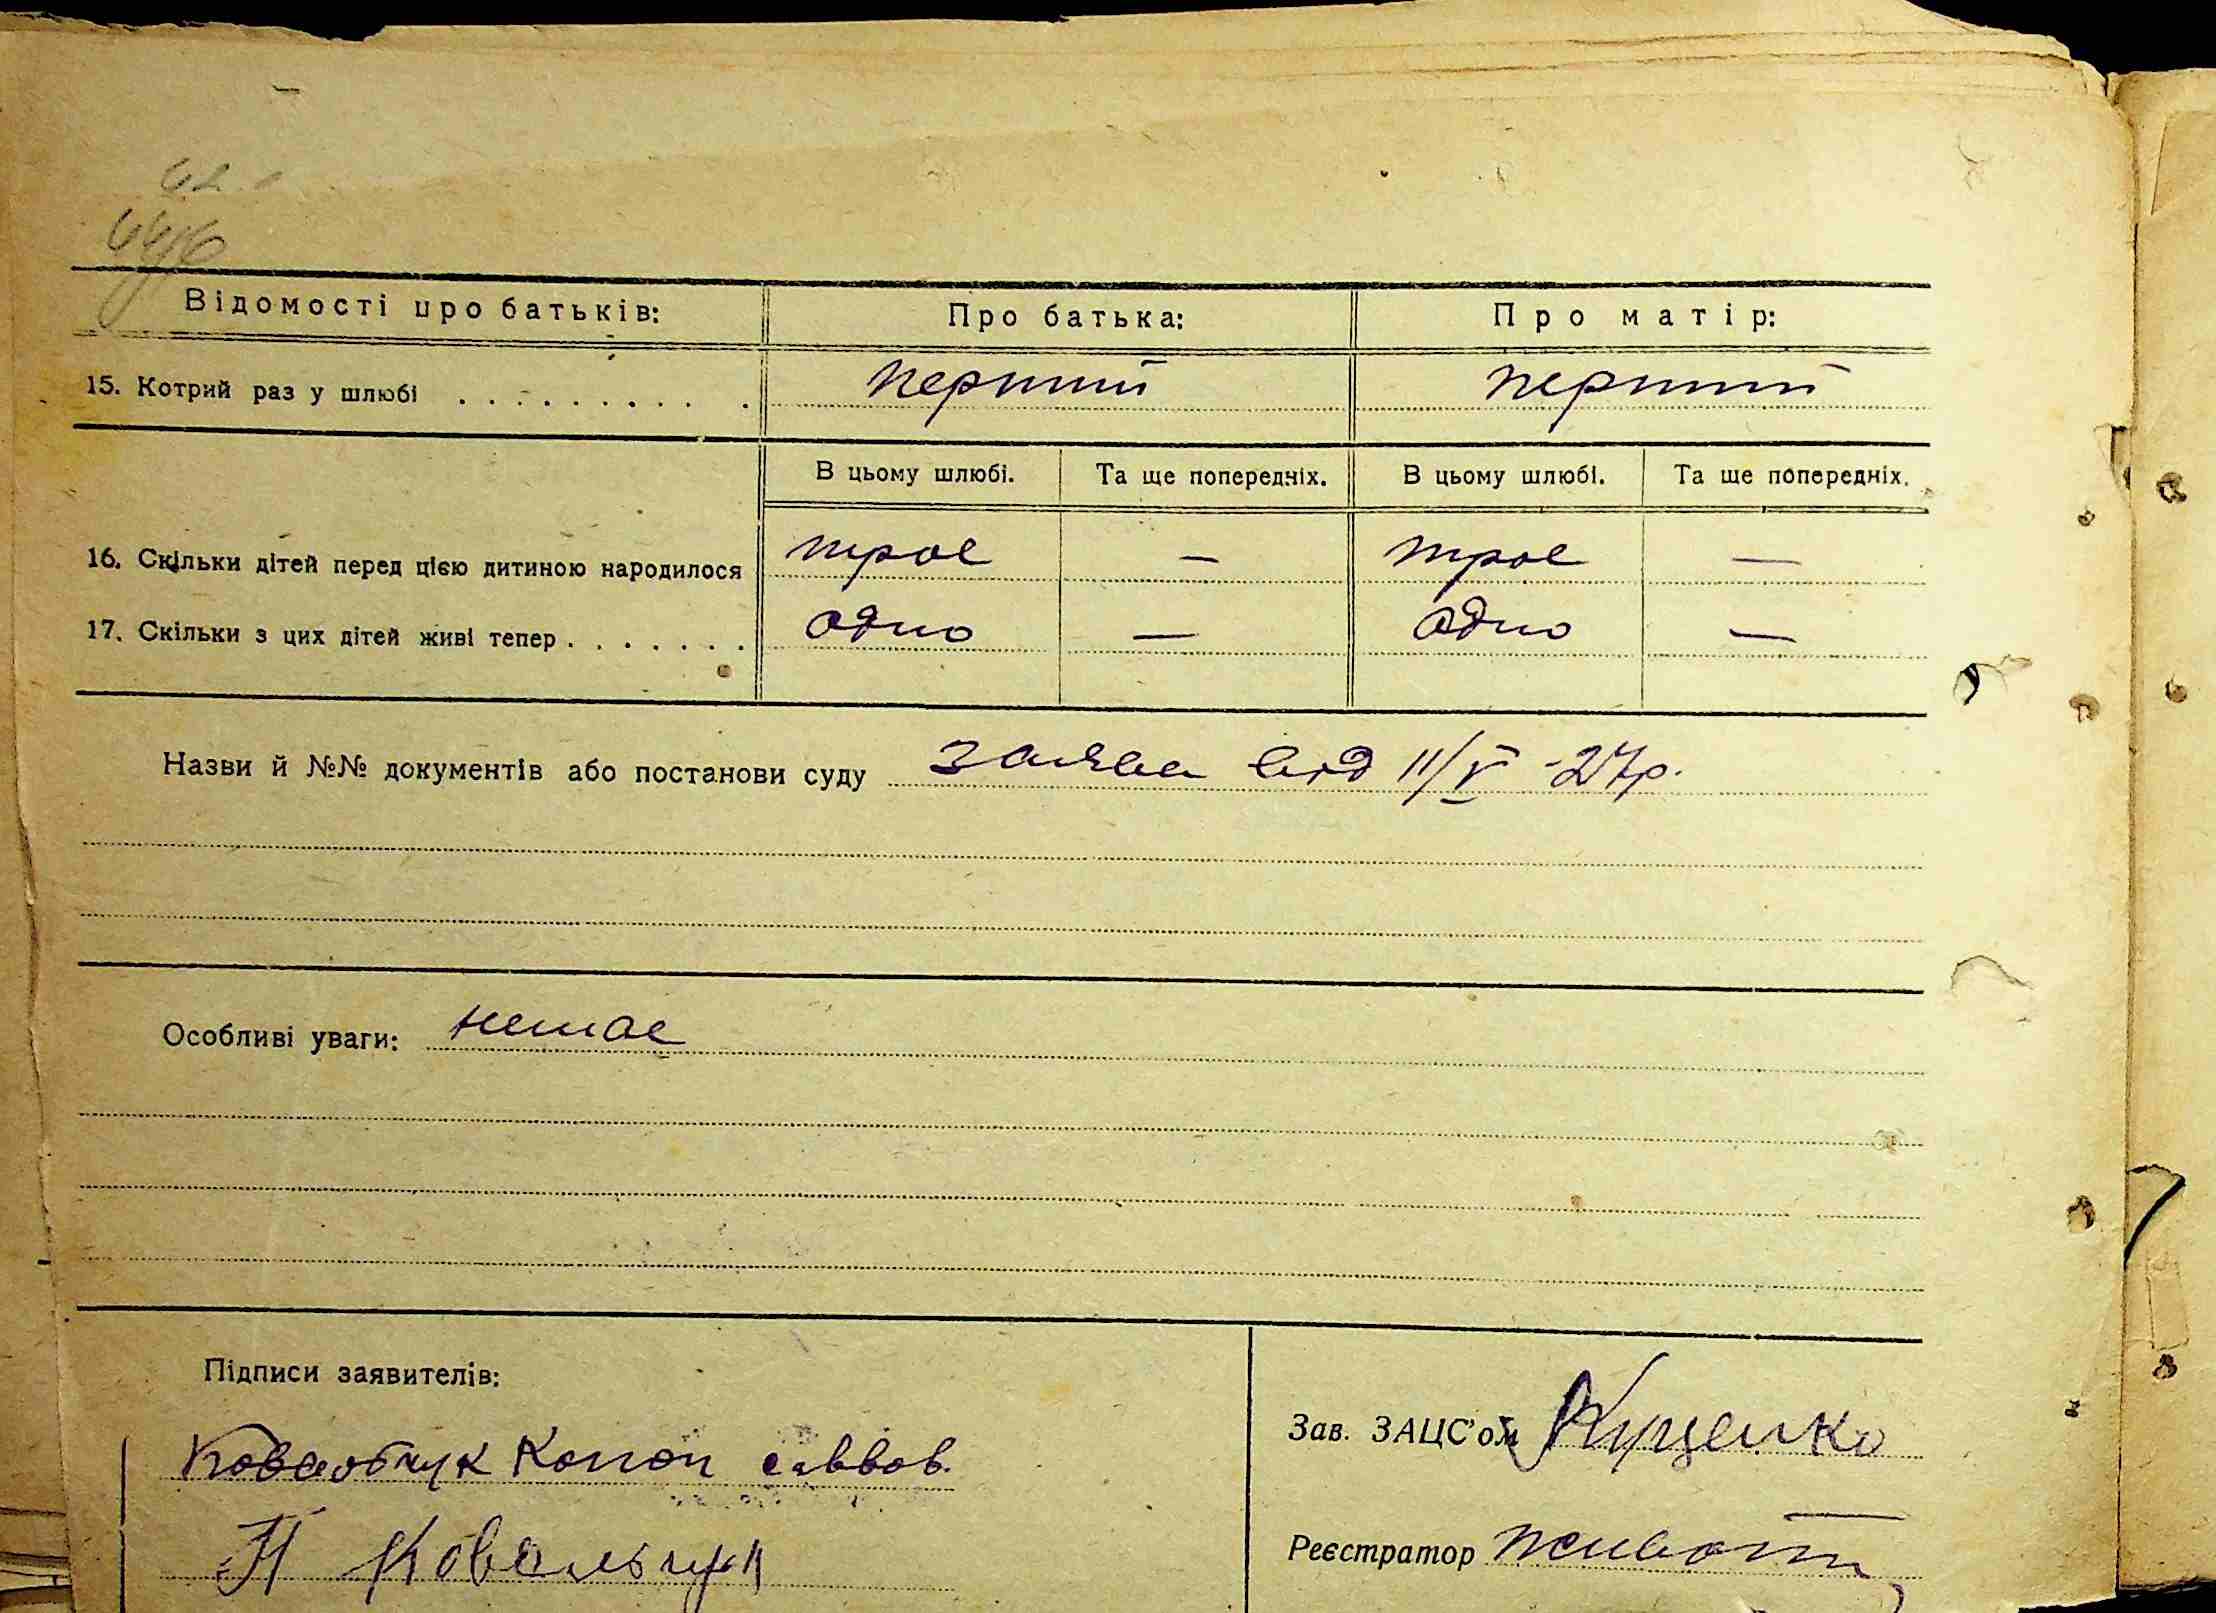 Відомості про батьків: Про батька: Про матір:
15. Котрий раз у шлюбі . . . . . . . . . . перший перший
В цьому шлюбі. Та ще попередніх. В цьому шлюбі. Та ще попередніх.
16. Скільки дітей перед цією дитиною народилося троє — троє —
17. Скільки з цих дітей живі тепер . . . . . . . одно — одно —
Назви й №№ документів або постанови суду заява від 11/V -27р.
Особливі уваги: немає
Підписи заявителів:
Зав. ЗАЦС'ом Куценко
Ковальчук Конон Саввов.
Реєстратор
П Ковальчук